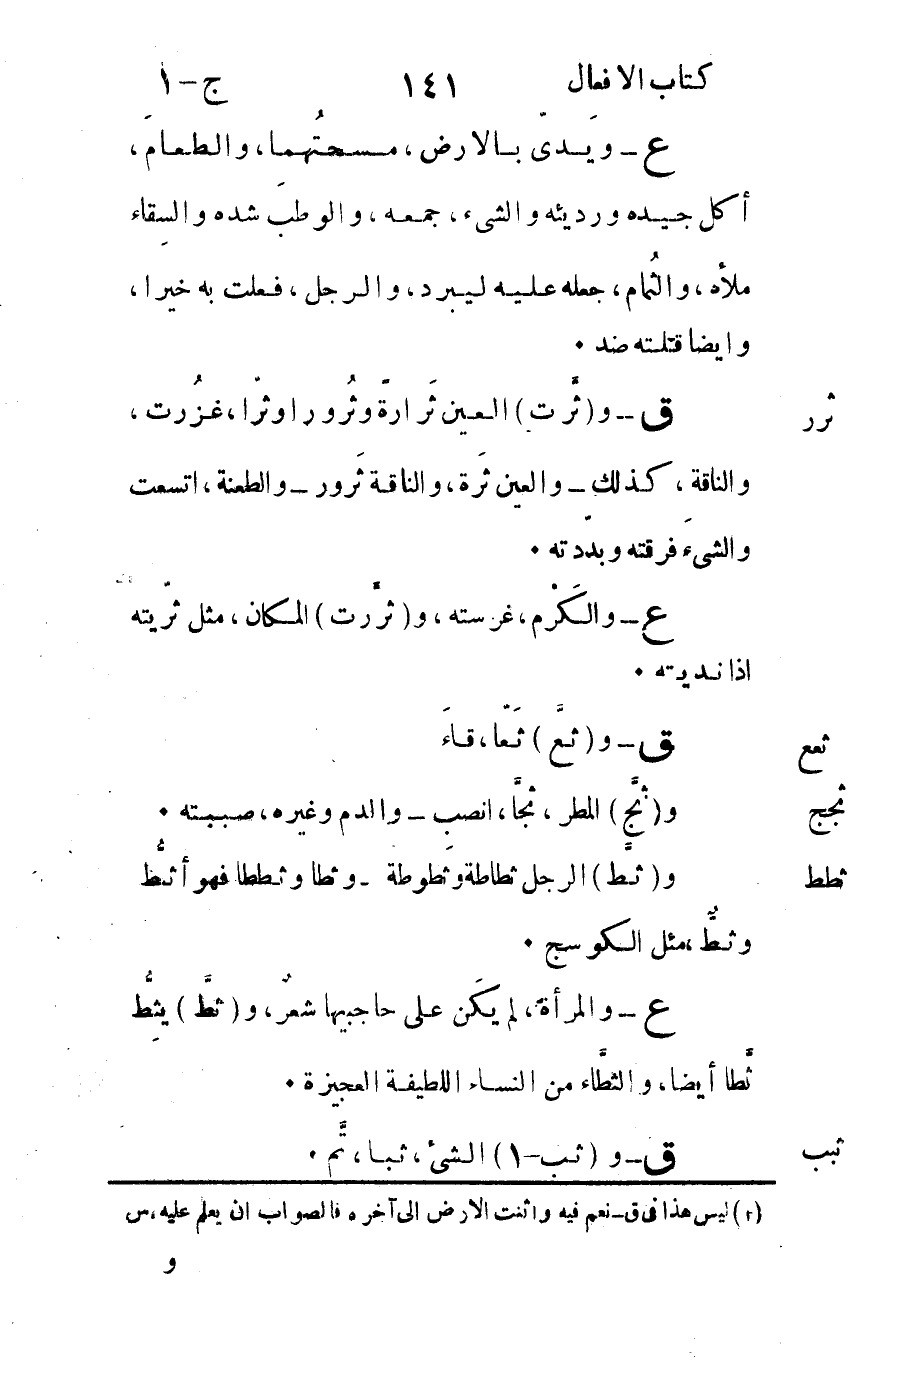 كتاب الافعال ١٤١ ج-١
ع ـ ويدىّ بالارض، مسحتُهما، والطعامَ،
أكل جيده ورديئه والشىء، جمعه، والوطَب شده والسِقاء
ملأه، والثُمام، جعله عليه ليبرد، والرجل، فعلت به خيرا،
وايضا قتلته ضد •
ثرر ق ـ و(ثَّرت) العين ثَرارةً وثُرورا وثرّا، غزُرت،
والناقة، كذلك ـ والعين ثَرة، والناقة ثَرور ـ والطعنة، اتسعت
والشىءَ فرقته وبدّدته •
ع ـ والكَرْم، غرسته، و(ثرَّرت) المكان، مثل ثرّيته
اذا نديته •
ثعع ق ـ و(ثعَّ) ثَعّا، قاءَ
ثجج و(ثجَّ) المطر، ثجَّا، انصب ـ والدم وغيره، صببته •
ثطط و(ثطَّ) الرجل ثطاطة وثطوطة ـ وثطا وثططا فهو أثطُّ
وثطٌّ، مثل الكوسج •
ع ـ والمرأة، لم يكَن على حاجبيها شعرٌ، و(ثطَّ) يثِطُّ
ثَّطا أيضا، والثطَّاء من النساء اللطيفة العجيزة •
ثبب ق ـ و(ثب-١) الشئ، ثبا، تَّم •
(١) ليس هذا فى ق ـ نعم فيه واثنت الارض الى آخره فالصواب ان يعلم عليه، س
و